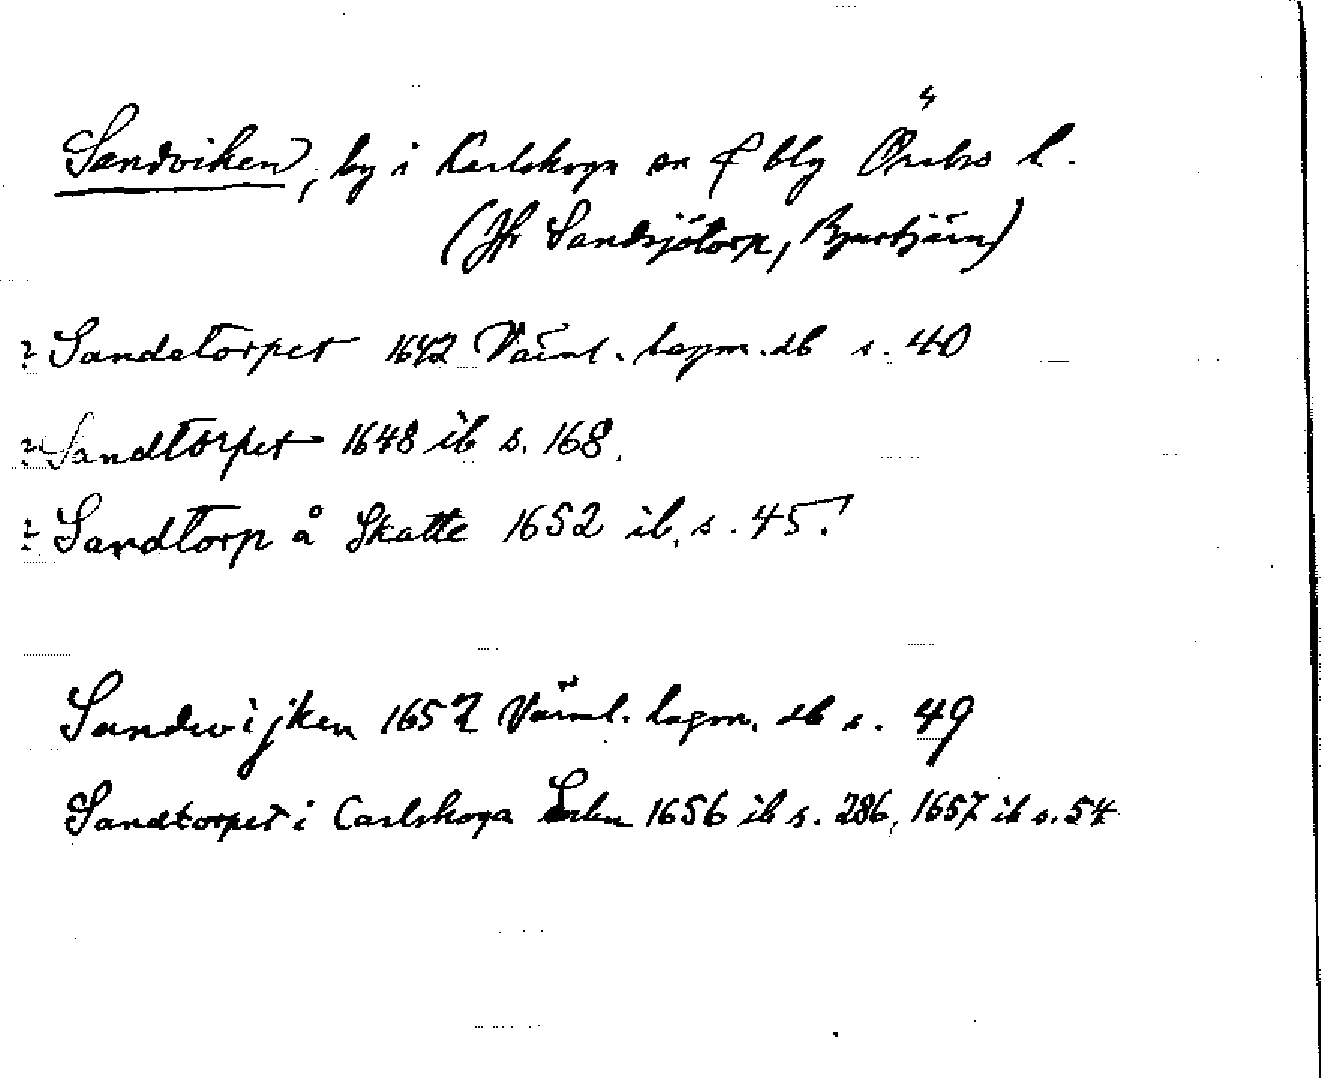 Sandviken, by i Karlskoga sn o f blg Örebro l.
(Jfr Sandsjötorp, Bjurtjärn)
? Sandetorpet 1642 Värml. lagm. db s. 40
? Sandtorpet 1648 ib s. 168.
? Sandtorp å Skatte 1652 ib. s. 45.
Sandwijken 1652 Värml. lagm. db s. 49
Sandtorpet i Carlskoga Sokn 1656 ib s. 286, 1657 ib s. 54